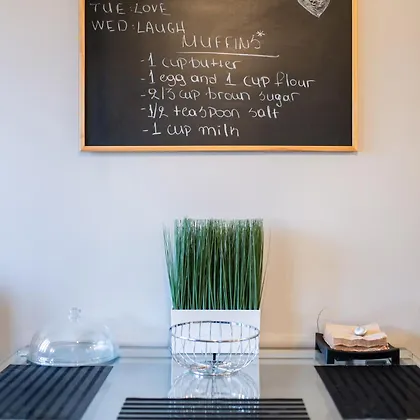 TUE:LOVE
WED:LAUGH
MUFFINS*
-1 cup butter
-1 egg and 1 cup flour
-2/3 cup broun sugar
-1/2 teaspoon salt
-1 cup milk